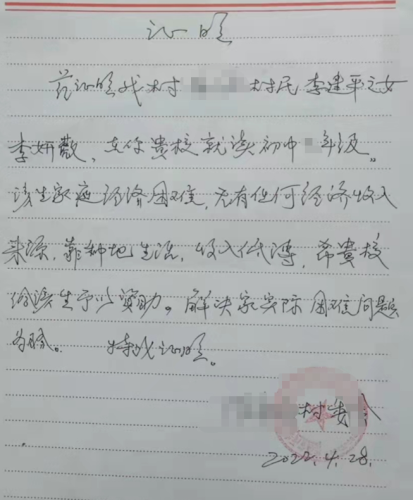 证明
兹证明我村 村民李建平之女
李妍薇、在你贵校就读初中 年级。
该生家庭经济困难,无有任何经济收入
来源,靠种地生活,收入低薄,希贵校
给该生予以资助。解决家实际困难问题
为盼。 特此证明。
村委会
2022.4.28.